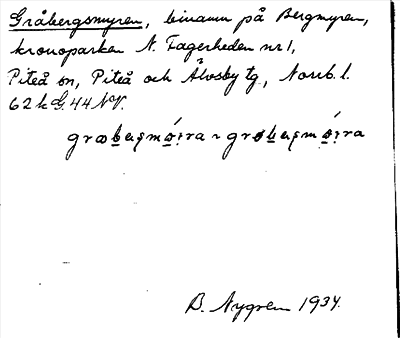 Gråbergsmyren, binamn på Bergmyren,
kronoparken N. Fagerheden nr 1,
Piteå sn, Piteå och Älvsby tg., Norrb. l.
62 k G. 44 NV.
B. Nygren 1934.